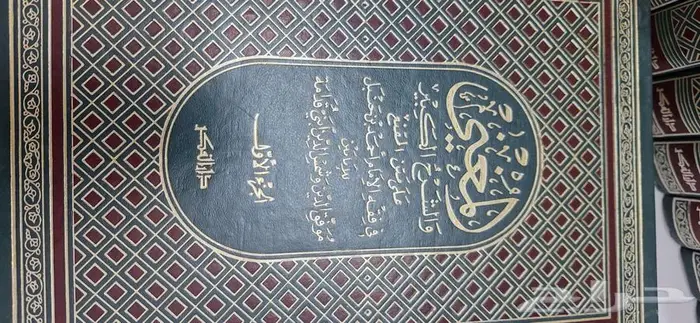 المغني
والشرح الكبير
على متن المقنع
في فقه الإمام أحمد بن حنبل
للإمامين
موفق الدين وشمس الدين ابني قدامة
الجزء الأول
دار الفكر
حراج